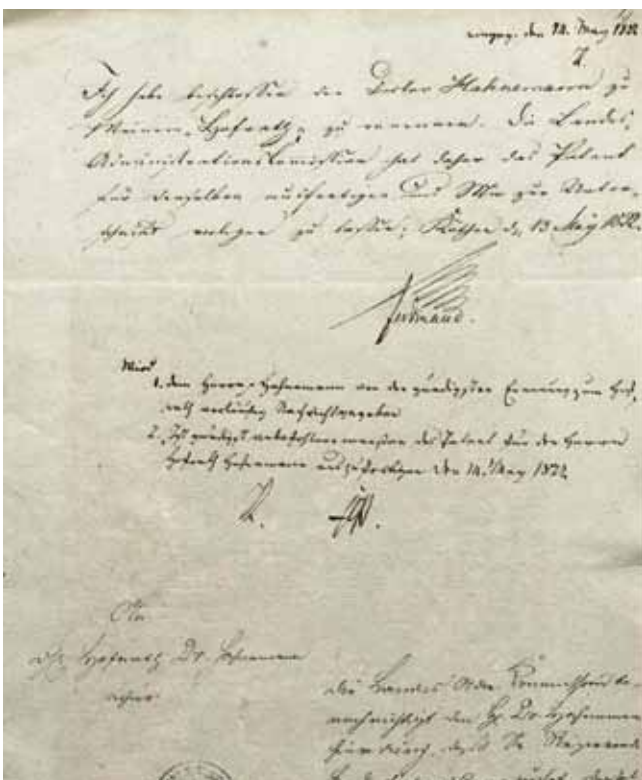 eingeg. den 14. May 1822
Ich habe beschlossen den Doctor Hahnemann zu
Meinem Hofrath zu ernennen. Die Landes
Administrations Comission hat daher das Patent
für denselben ausfertigen und Mir zur Unter
schrift vorlegen zu lassen; Köthen d. 13 May 1822.
Ferdinand.
Wird
1. dem Herrn Hahnemann von der gnädigsten Ernennung zum Hof
rath vorläufig Nachricht gegeben
2. Ist gnädigst anbefohlner maassen das Patent für den Herrn
Hofrath Hahnemann auszufertigen den 14. May 1822
An
Hofrath Dr. Hahnemann
die Landes
nachrichtigt den H. Dr. Hahnemann
hierdurch, daß